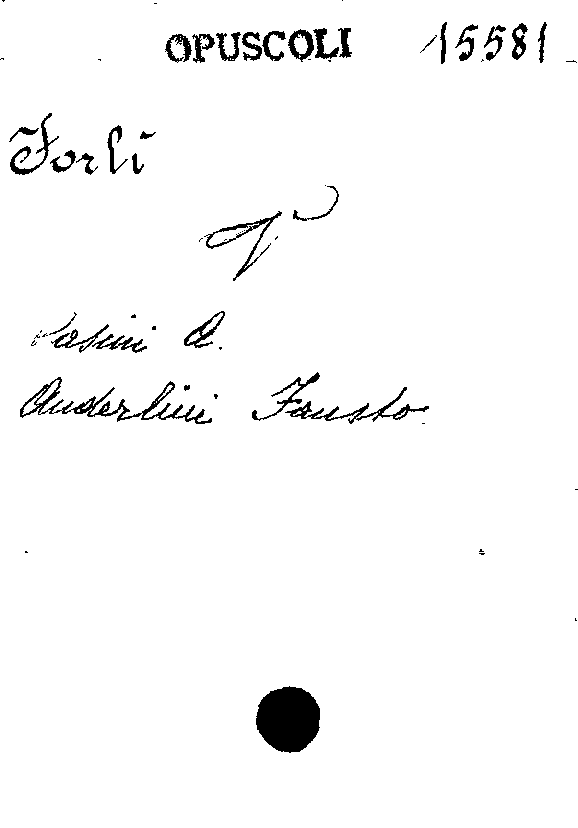 OPUSCOLI 15581
Forlì
V
Vasini A.
Anderlini Fausto